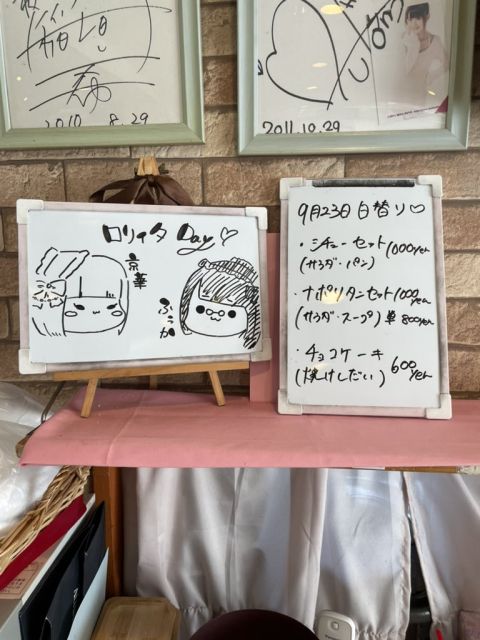 2010 8.29
2011.10.29
ロリィタ Day♡
京華
ふうか
9月23日 日替り♡
・シチューセット 1000yen
(サラダ・パン)
・ナポリタンセット 1000yen
(サラダ・スープ) 単 800yen
・チョコケーキ 600yen
(焼けしだい)